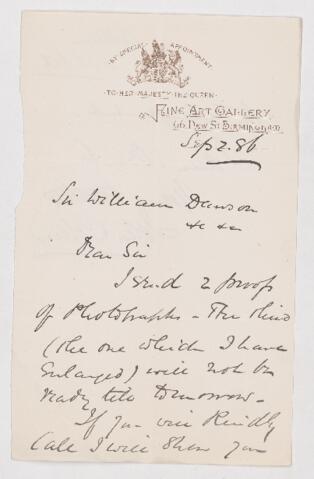 BY SPECIAL APPOINTMENT
TO HER MAJESTY THE QUEEN
FINE ART GALLERY
66 NEW ST BIRMINGHAM
Sep 2. 86
Sir William Dawson
&c &c
Dear Sir
I send 2 proofs
of Photographs - The third
(the one which I have
Enlarged) will not be
ready till tomorrow -
If you will Kindly
Call I will show you